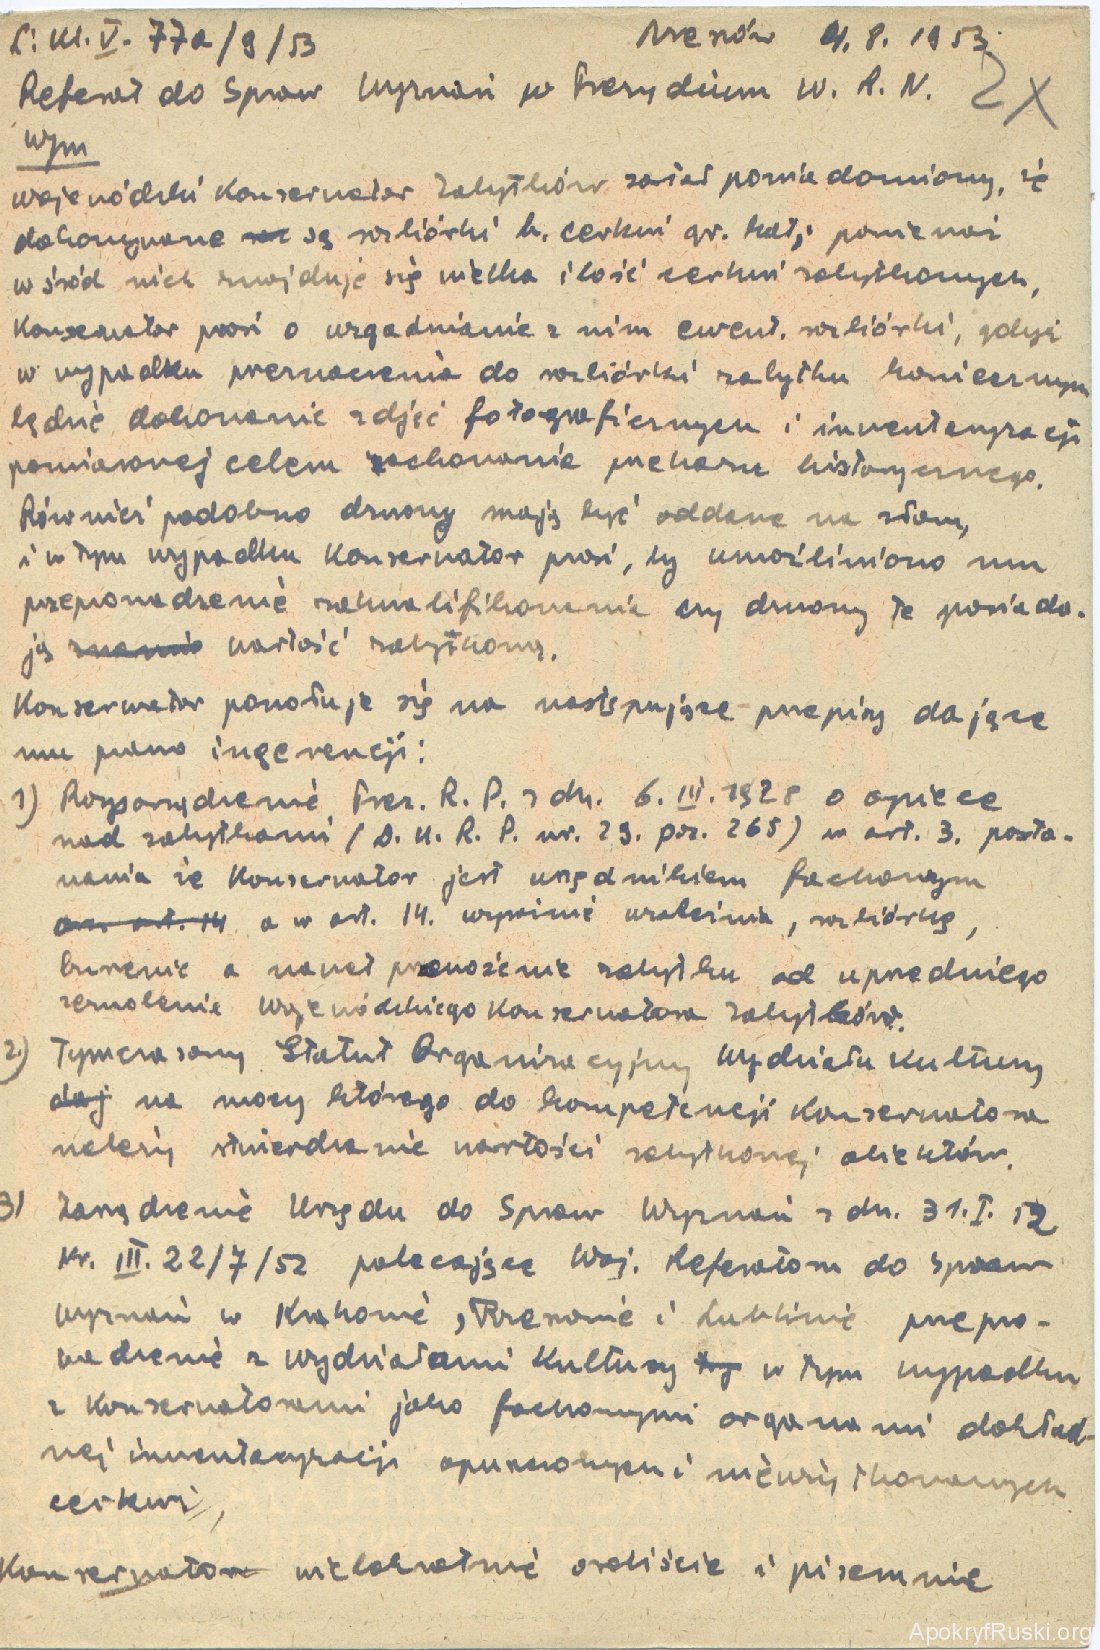 L: Kl. V. 77a/9/53 Rzeszów 4. 8. 1953.
2X
Referat do Spraw Wyznań w Prezydium W. R. N.
wym
Wojewódzki Konserwator Zabytków został powiadomiony, że
dokonywane są rozbiórki b. cerkwi gr. kat., ponieważ
wśród nich znajduje się wielka ilość cerkwi zabytkowych,
Konserwator prosi o uzgadnianie z nim ewent. rozbiórki, gdyż
w wypadku przeznaczenia do rozbiórki zabytku koniecznym
będzie dokonanie zdjęć fotograficznych i inwentaryzacji
pomiarowej celem zachowania przekazu historycznego.
Również podobno dzwony mają być oddane na złom,
i w tym wypadku Konserwator prosi, by umożliwiono mu
przeprowadzenie zakwalifikowania czy dzwony te posiada-
ją wartość zabytkową.
Konserwator powołuje się na następujące przepisy dające
mu prawo ingerencji:
1) Rozporządzenie Prez. R. P. z dn. 6. III. 1928 o opiece
nad zabytkami (D. U. R. P. nr. 29. poz. 265) w art. 3. posta-
nawia że Konserwator jest urzędnikiem fachowym
oraz art. 14 a w art. 14. wyraźnie uzależnia, rozbiórkę,
burzenie a nawet przenoszenie zabytku od uprzedniego
zezwolenia Wojewódzkiego Konserwatora Zabytków.
2.) Tymczasowy Statut Organizacyjny Wydziału Kultury
daj na mocy którego do kompetencji Konserwatora
należy stwierdzanie wartości zabytkowej obiektów.
3) Zarządzenie Urzędu do Spraw Wyznań z dn. 31. I. 52
Nr. III. 22/7/52 polecające Woj. Referatom do Spraw
Wyznań w Krakowie, Rzeszowie i Lublinie przepro-
wadzenie z Wydziałami Kultury w tym wypadku
z Konserwatorami jako fachowymi organami dokład-
nej inwentaryzacji opuszczonych i nieużytkowanych
cerkwi,
Konserwator wielokrotnie osobiście i pisemnie
ApokryfRuski.org